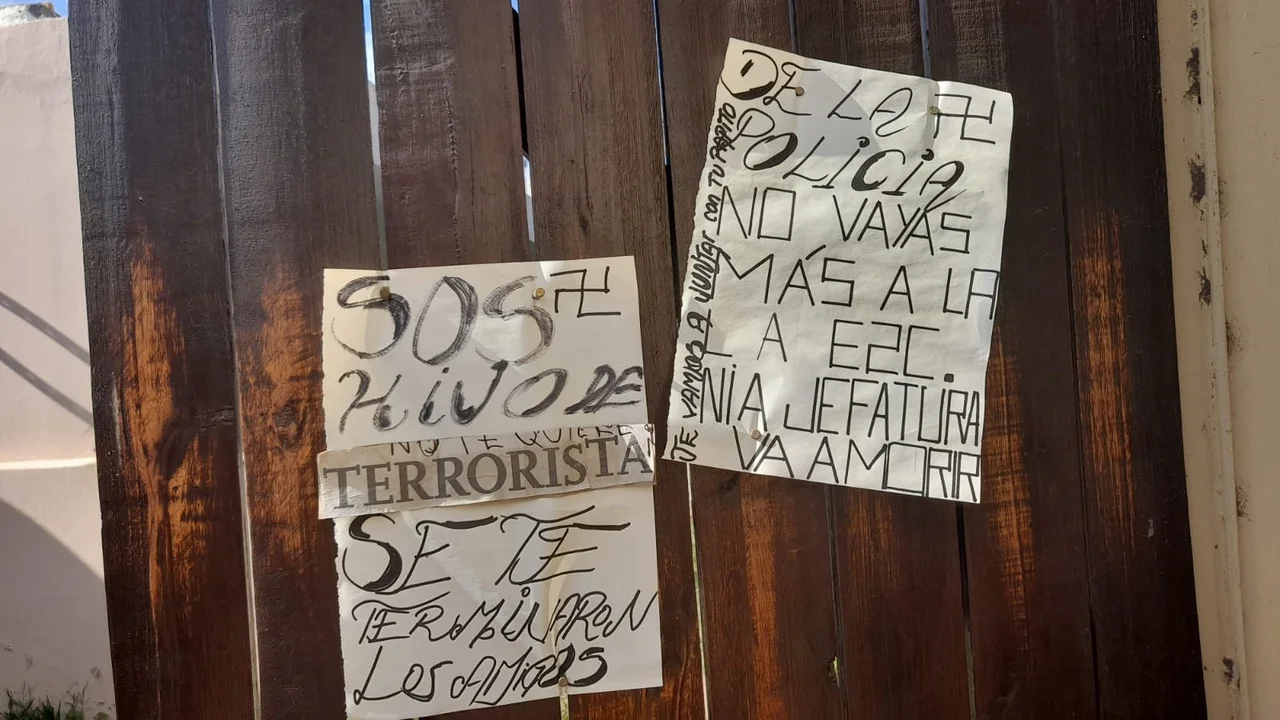 SOS 卐
HIJO DE
NO TE QUIERE
TERRORISTA
SE TE
TERMINARON
LOS AMIGOS
DE LA 卐
POLICIA
NO VAYAS
MÁS A LA
A EZC.
NI A JEFATURA
VA A MORIR
TE VAMOS A JUNTAR CON TU PAPITO